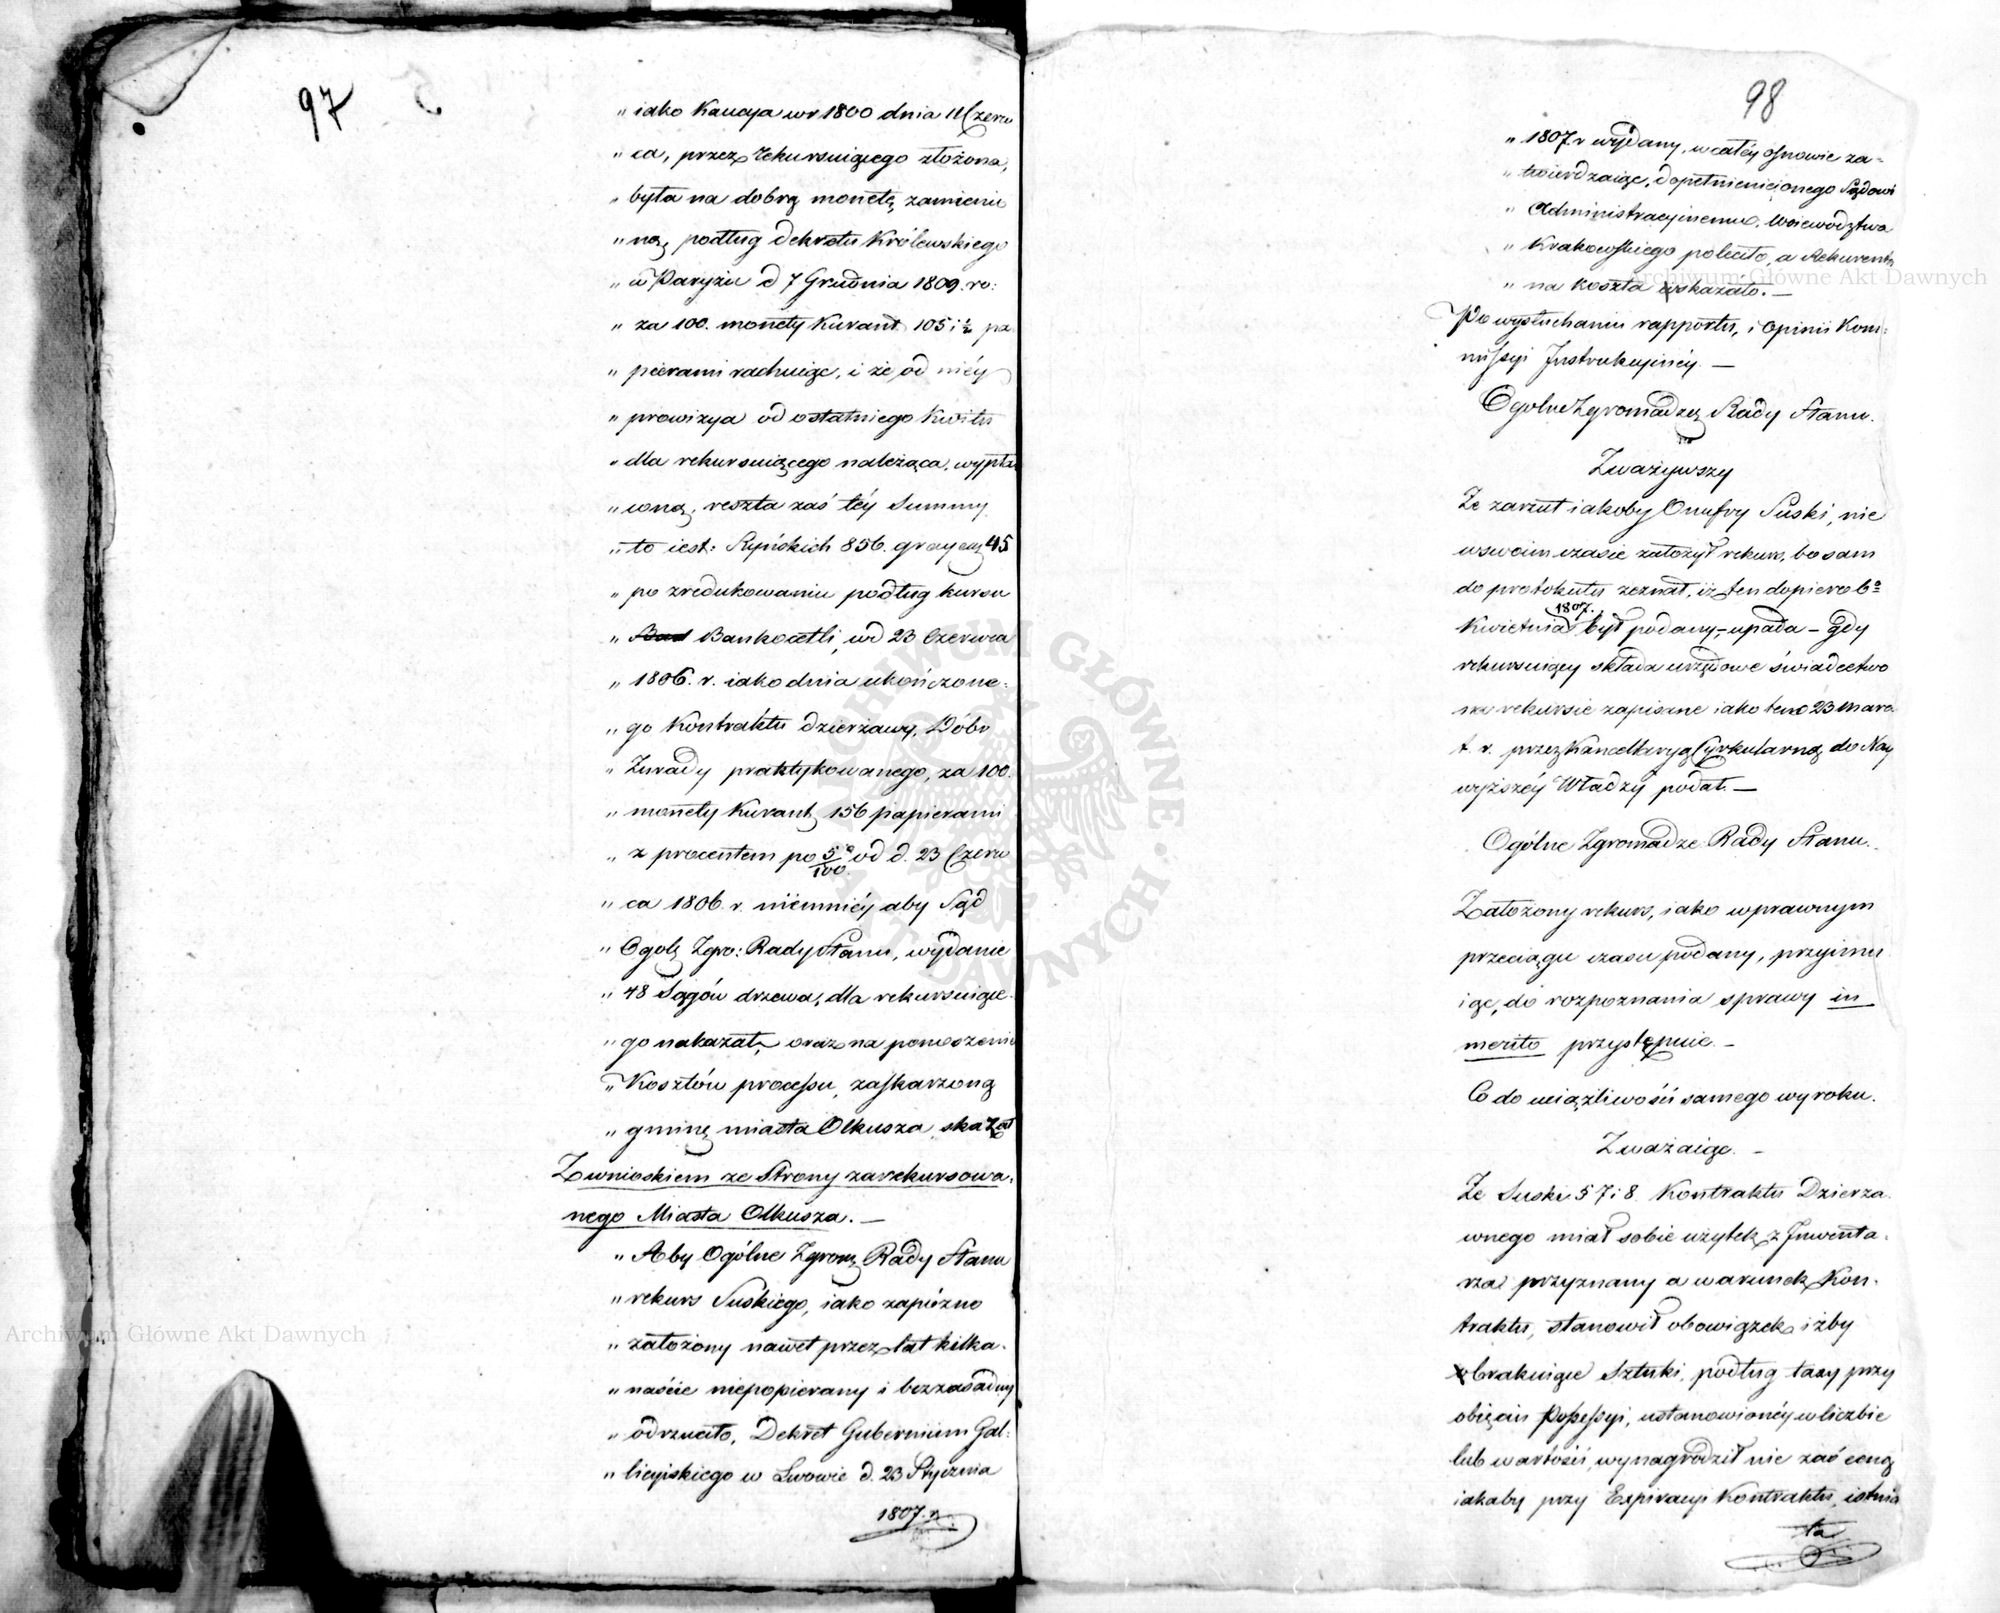 97
„ iako Kaucya w r 1800 dnia 11 Czerw
„ ca, przez rekursuiącego złożona,
„ była na dobrą monetę, zamienio
„ ną, podług Dekretu Królewskiego
„ w Paryżu d 7 Grudnia 1809. ro:
„ za 100. monety Kurant. 105 i ½ pa
„ pierami rachuiąc, i że od niéy
„ prowizya od ostatniego Kwitu
„ dla rekursuiącego należąca, wypła
„ coną, reszta zaś téy Summy
„ to iest: Ryńskich 856. graycar 45
„ po zredukowaniu podług kursu
„ Bankocetli, w d 23 Czerwca
„ 1806. r. iako dnia ukończone:
„ go Kontraktu dzierżawy, Dóbr
„ Żurady praktykowanego, za 100.
„ monety Kurant, 156 papierami
„ z procentem po 5/100 od d. 23 Czerw
„ ca 1806. r. niemniéy aby Sąd
„ Ogol: Zgro: Rady Stanu, wydanie
„ 48 Sągów drzewa, dla rekursuiące
„ go nakazał, oraz na ponoszenie
„ Kosztów processu, zaskarzoną
„ gminę miasta Olkusza skazał
Z wnioskiem ze Strony zarekursowa,
nego Miasta Olkusza. —
„ Aby Ogólne Zgrom: Rady Stanu
„ rekurs Suskiego, iako zapóźno
„ założony nawet przez lat kilka.
„ naście niepopierany i bezzasadny
„ odrzuciło, Dekret Gubernium Gal:
„ licyiskiego w Lwowie d. 23 Stycznia
1807. r.
98
„ 1807. r wydany, w całéy osnowie za=
„ twierdzaiąc, dopełnienie onego Sądowi
„ Administracyinemu, Woiewództwa
„ Krakowskiego poleciło, a Rekurenta
„ na koszta wskazało. —
Po wysłuchaniu rapportu, i Opinii Kom:
missyi Instrukcyinéy. —
Ogolne Zgromadze: Rady Stanu.
Zważywszy
Że zarzut iakoby Onufry Suski, nie
w swoim czasie założył rekurs, bo sam
do protokułu zeznał, iż ten dopiero 6º
Kwietnia 1807. był podany, – upada – gdy
rekursuiący składa urzędowe świadectwo
na rekursie zapisane iako ten 23 Marca
t. r. przez Kancellaryą Cyrkularną do Nay
wyższéy Władzy podał. —
Ogólne Zgromadze: Rady Stanu.
Założony rekurs, iako w prawnym
przeciągu czasu podany, przyimu
iąc, do rozpoznania sprawy in
merito przystępuie. —
Co do uciążliwości samego wyroku.
Zważaiąc. –
Że Suski § 7 i 8. Kontraktu Dzierża
wnego miał sobie użytek z Inwenta.
rza przyznany a warunek Kon.
traktu, stanowił obowiązek, iżby
brakuiące Sztuki, podług taxy przy
obięciu Possessyi, ustanowionéy w liczbie
lub wartości, wynagrodził nie zaś ceną
iakaby przy Expiracyi Kontraktu, istnia
ła
Archiwum Główne Akt Dawnych
Archiwum Główne Akt Dawnych
ARCHIWUM GŁÓWNE AKT DAWNYCH